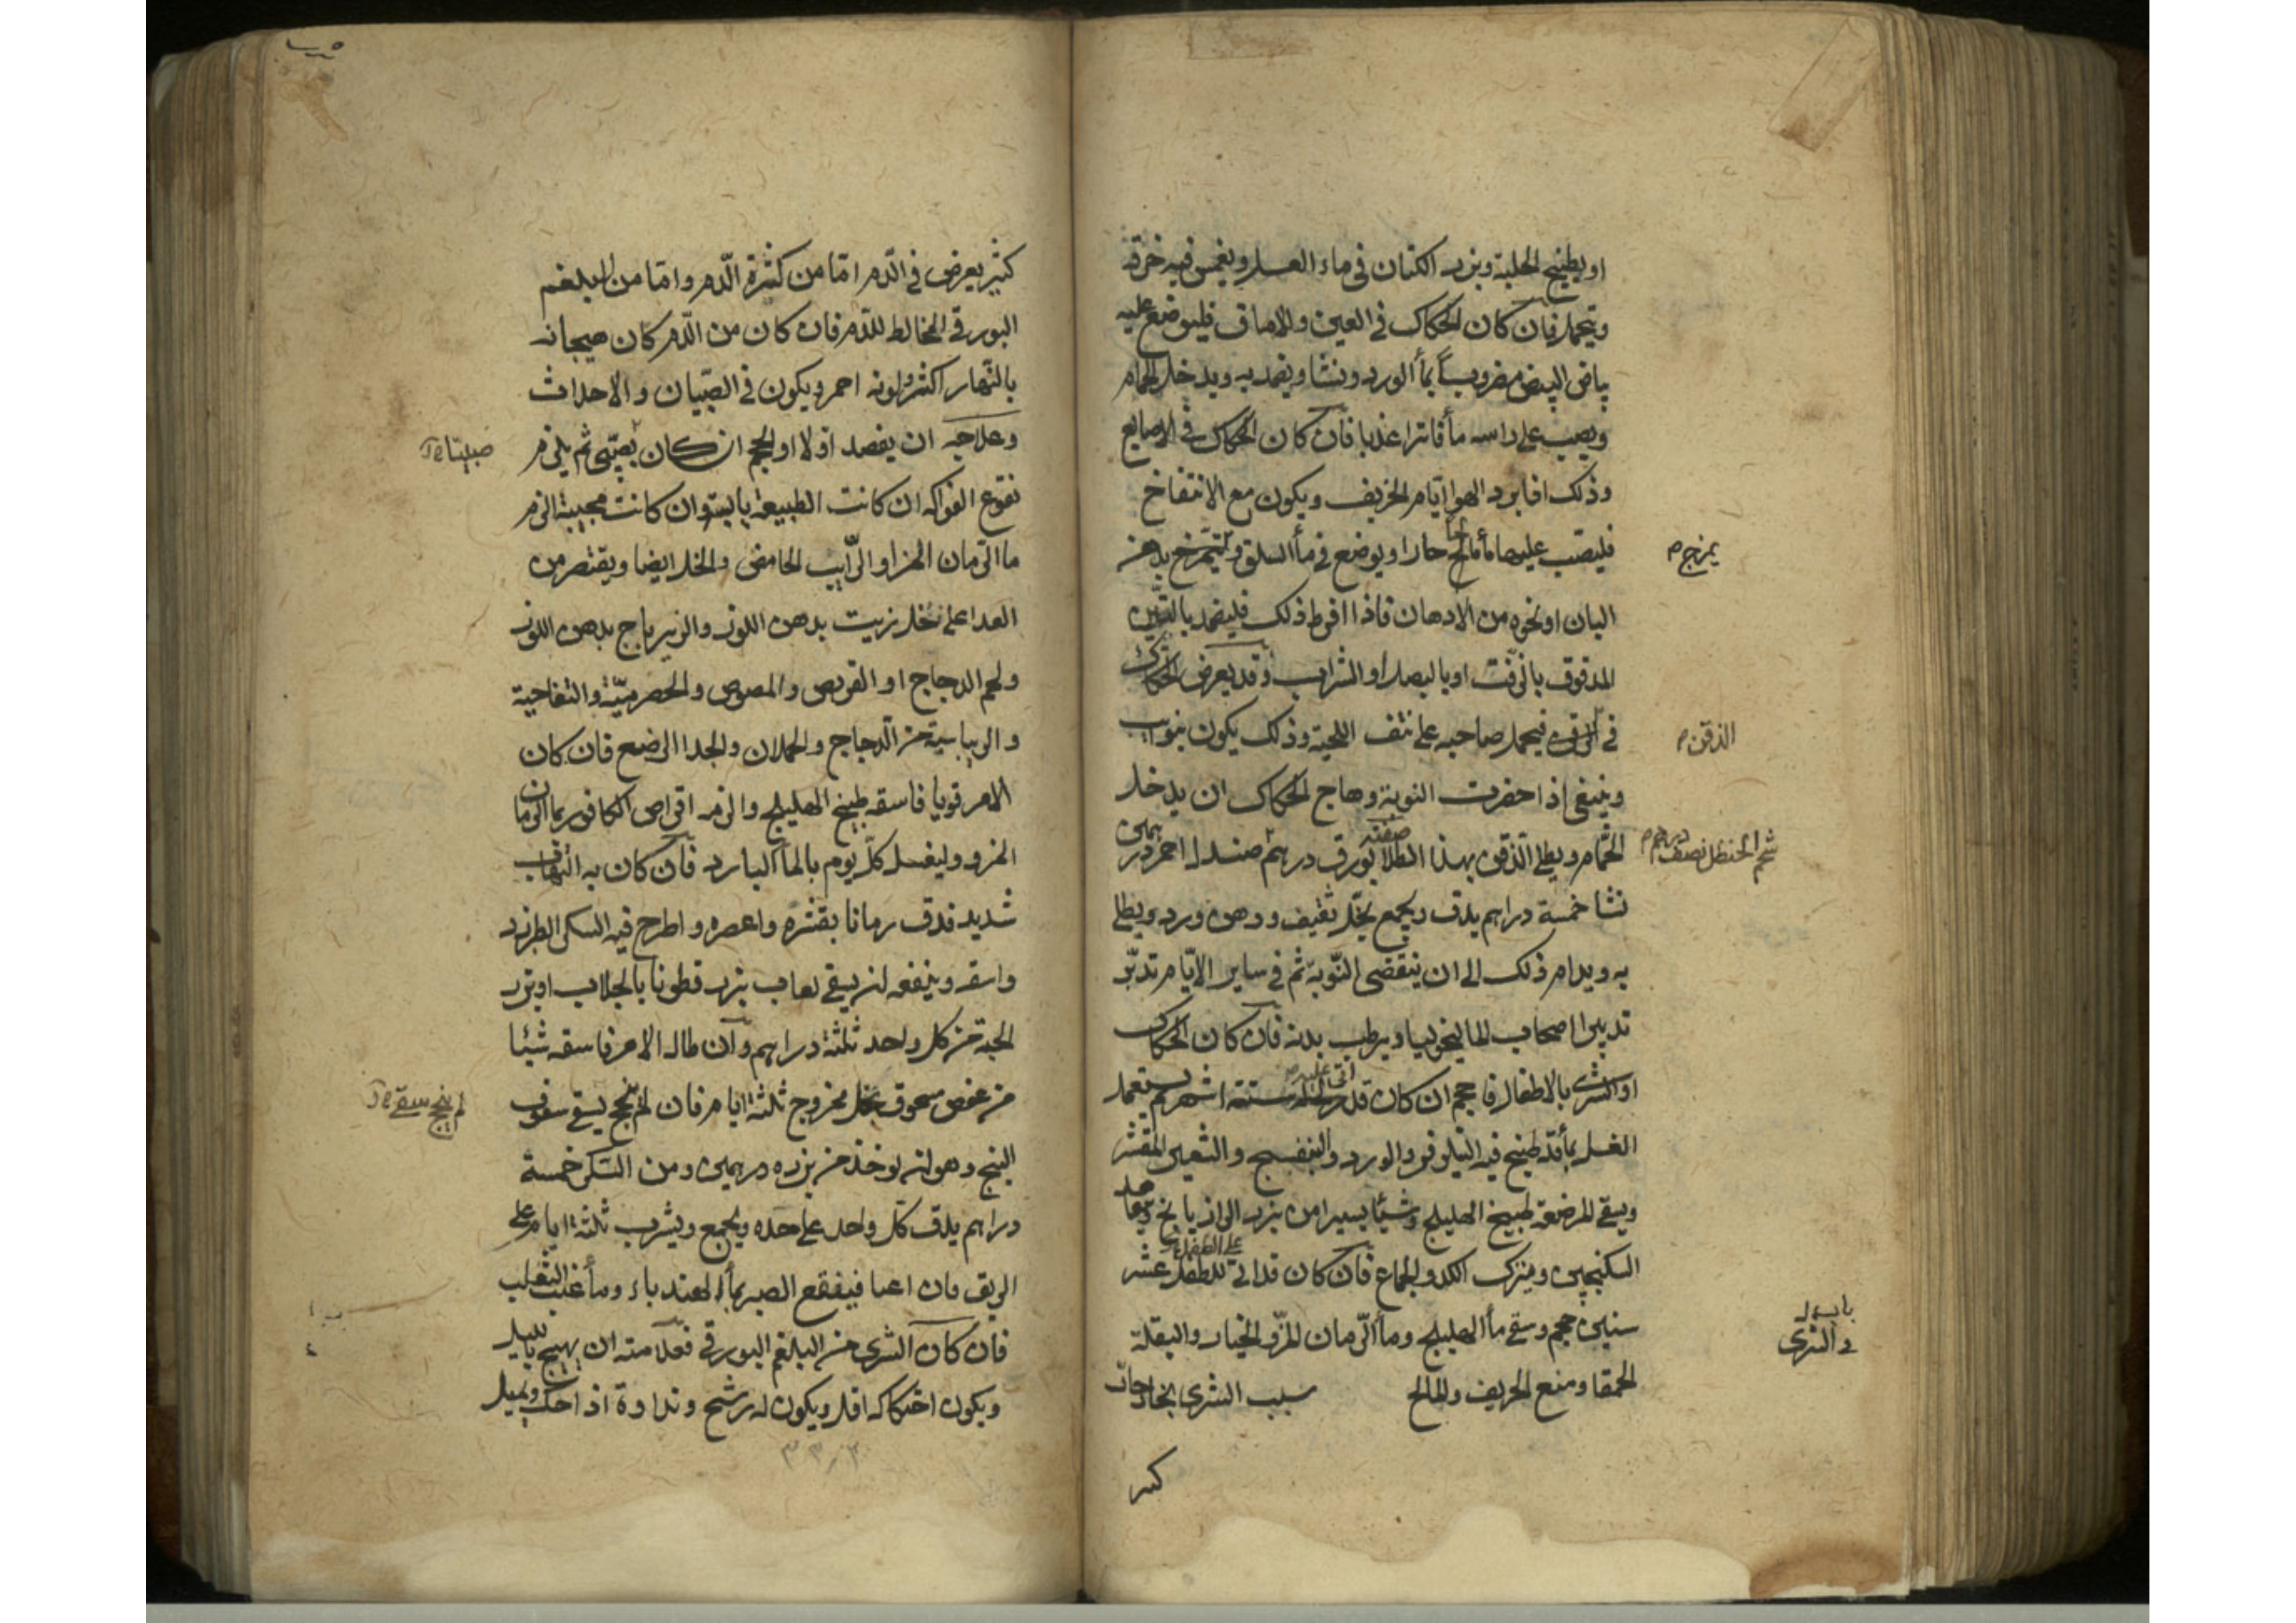 او يطبخ الحلبة وبزر الكتان فى ماء العسل ويغمس فيه خرقة
ويتحمل فان كان الحكاك فى العين والاماق فليوضع عليه
بياض البيض مضروباً بمأ الورد ونشا ويضمد به ويدخل الحمام
ويصب على راسه مأ فاترا عذبا فان كان الحكاك فى الاصابع
وذلك اذا برد الهوا ايام الخريف ويكون مع الانتفاخ
فليصب عليها مأ مالحا حارا او يوضع فى مأ السلق وليتمرخ بدهن
يمزج م
البان او نحوه من الادهان فاذا افرط ذلك فليضمد بالتين
المدقوق بالزفت او بالبصل او الشراب وقد يعرض الحكاك
فى الرقن فيحمل صاحبه على نتف اللحية وذلك يكون بنوايب
الذقن م
وينبغى اذا حضرت النوبة وهاج الحكاك ان يدخل
الحمام ويطلى الذقن بهذا الطلا صفته بورق درهم صندل احمر درهمين
شحم الحنظل نصف درهم م
نشا خمسة دراهم يدق ويجمع بخل ثقيف ودهن ورد ويطلى
به ويدام ذلك الى ان ينقضى النوبة ثم فى ساير الايام تدبر
تدبير اصحاب الماليخوليا ويرطب بدنه فان كان الحكاك
او الشرى بالاطفال فاحجم ان كان قد اتى عليه ستة اشهر ثم يستعمل
الغسل بمأ قد طبخ فيه النيلوفر والورد والبنفسج والشعير المقشر
ويسقى المرضعة طبيخ الهليلج وشيئا يسيرا من بزر الرازيانج وتعاهد
السكنجبين ويترك الكد والجماع فان كان قد اتى على الطفل عشر
سنين حجم وسقى مأ الهليلج ومأ الرمان المز والخيار والبقلة
باب
فى الشرى
الحمقا ومنع الحريف والمالح سبب الشرى بخار حاد
كثير
كثير يعرض فى الدم اما من كثرة الدم واما من البلغم
البورقى المخالط للدم فان كان من الدم كان هيجانه
بالنهار اكثر ولونه احمر ويكون فى الصبيان والاحداث
وعلاجه ان يفصد اولا او يحجم ان كان بصبى ثم يلزم
صبيتا
نقوع الفواكه ان كانت الطبيعة يابسة وان كانت مجيبة الزم
ما الرمان المز او الرايب الحامض والخل ايضا ويقتصر من
الغدا على خل زيت بدهن اللوز والزيرباج بدهن اللوز
ولحم الدجاج او القريص والمصوص والحصرمية والتفاحية
والريباسية من الدجاج والحملان والجدا الرضع فان كان
الامر قويا فاسقه طبيخ الهليلج والزم اقراص الكافور بما الرمان
المز وليغسل كل يوم بالما البارد فان كان به التهاب
شديد فدق رمانا بقشره واعصره واطرح فيه السكر الطبرزد
واسقه وينفعه ان يسقى لعاب بزر قطونا بالجلاب او بزر
الحبة من كل واحد ثلثة دراهم وان طال الامر فاسقه شيئا
من عفص مسحوق بخل ممزوج ثلثة ايام فان لم ينجح يسقى سفوف
لم ينجح سقى
البنج وهو ان يوخذ من بزره درهمين ومن السكر خمسة
دراهم يدق كل واحد على حده ويجمع ويشرب ثلثة ايام على
الريق فان اعيا فينقع الصبر بمأ الهندباء ومأ عنب الثعلب
فان كان الشرى من البلغم البورقى فعلامته ان يهيج بالليل
ويكون احتكاكه اقل ويكون له رشح ونداوة اذا حك ويميل